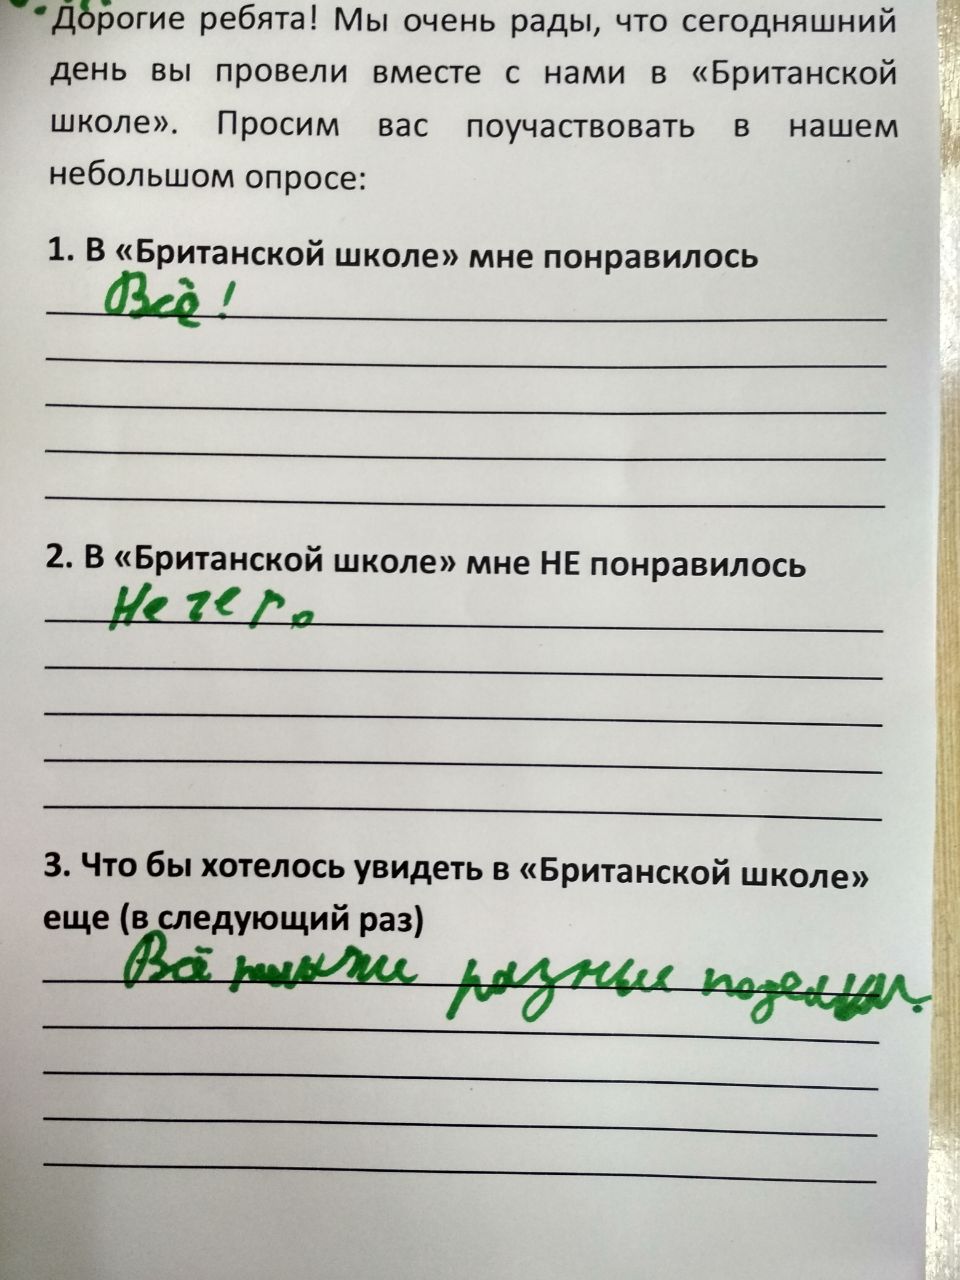 Дорогие ребята! Мы очень рады, что сегодняшний
день вы провели вместе с нами в «Британской
школе». Просим вас поучаствовать в нашем
небольшом опросе:
1. В «Британской школе» мне понравилось
Всё!
2. В «Британской школе» мне НЕ понравилось
Нечего
3. Что бы хотелось увидеть в «Британской школе»
еще (в следующий раз)
Всё разныи